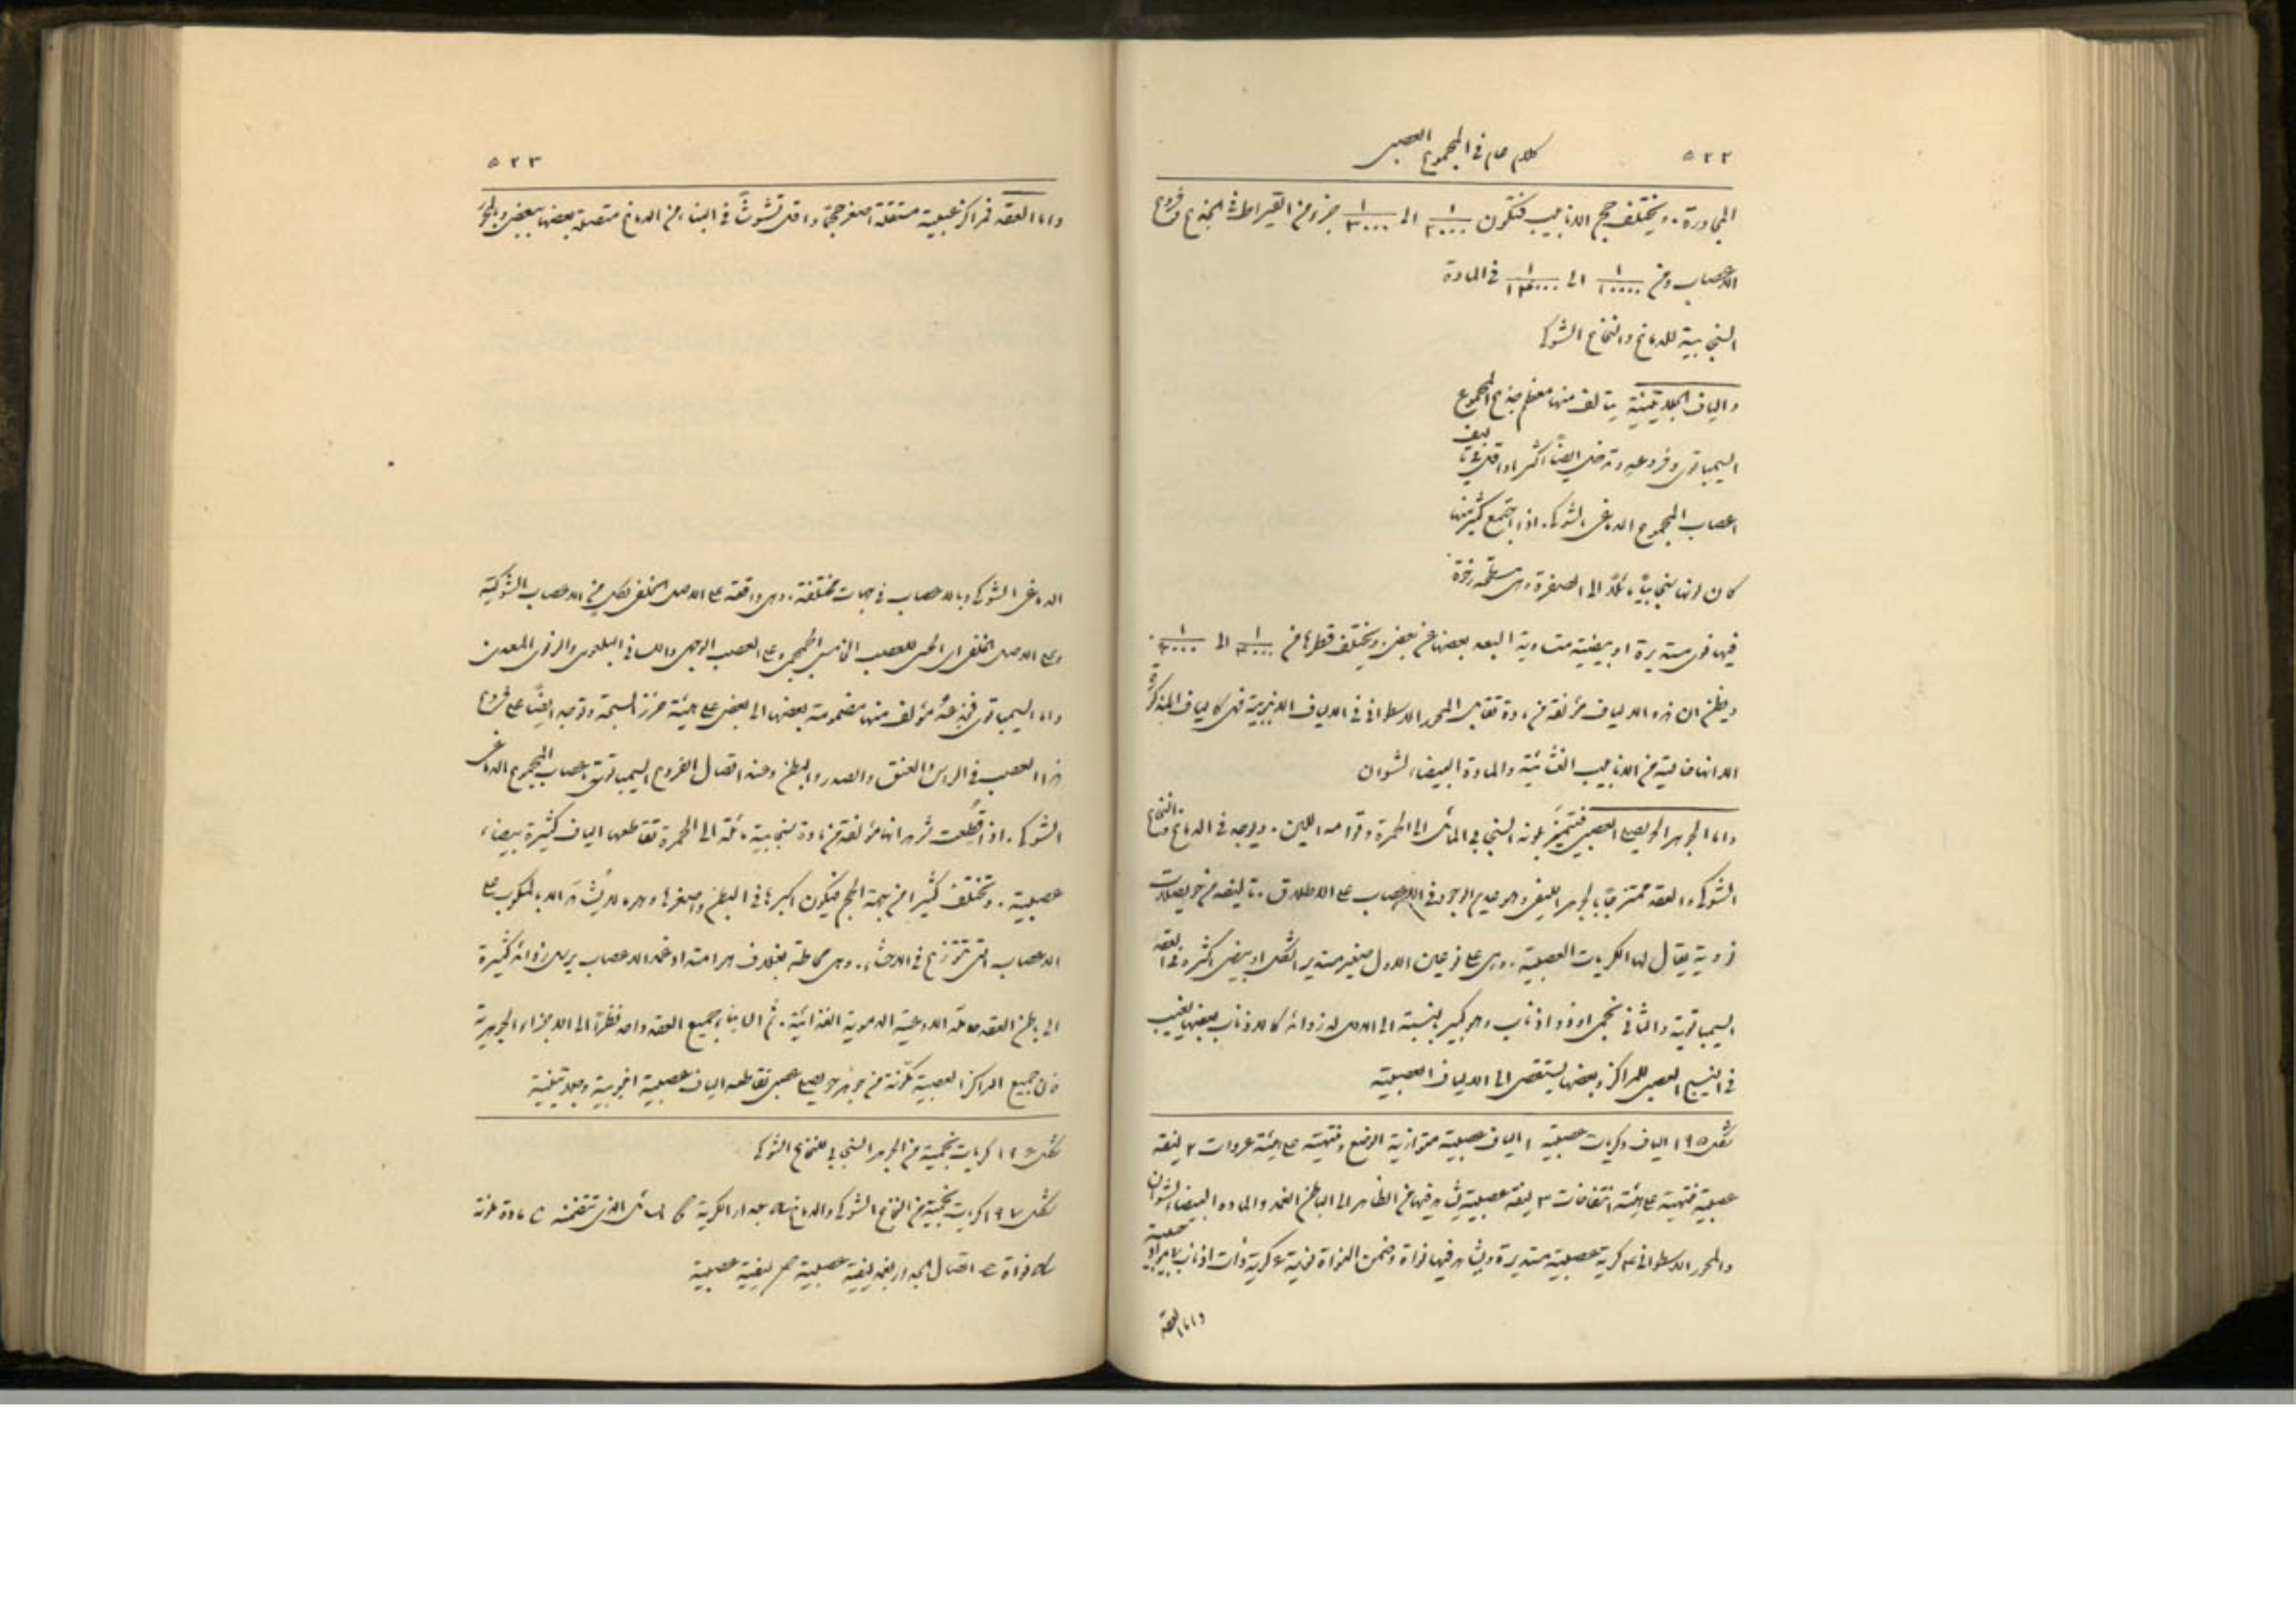 ٥٢٢
كلام عام في المجموع العصبي
المجاورة. ويختلف حجم الانابيب فتكون ١/٢٠٠٠ الى ١/٣٠٠٠ جزء من القيراط في الجذوع وفروع
الاعصاب ومن ١/١٠٠٠٠ الى ١/١٤٠٠٠ في المادة
السنجابية للدماغ والنخاع الشوكي
والياف الجلاتينية يتالف منها معظم جذع المجموع
السيمباتوي وفروعه وتدخل ايضاً اكثر او اقل في تاليف
اعصاب المجموع الدماغي الشوكي. اذا اجتمع كثير منها
كان لونها سنجابياً مائلاً الى الصفرة وهي مسطحة رخوة
فيها نوى مستديرة او بيضية متساوية البعد بعضها عن بعض. ويختلف قطرها من ١/٤٠٠٠ الى ١/٦٠٠٠.
ويظن ان هذه الالياف مؤلفة من مادة تقابل المحور الاسطواني في الالياف الانبوبية فهي كالياف المذكورة
الا انها خالية من الانابيب الغشائية والمادة البيضاء لشوان
واما الجوهر الحويصلي العصبي فيتميز بلونه السنجابي المائل الى الحمرة وقوامه اللين. ويوجد في الدماغ والنخاع
الشوكي والعقد ممتزجاً بالجوهر الليفي وهو عديم الوجود في الاعصاب على الاطلاق. تاليفه من حويصلات
نووية يقال لها الكريات العصبية. وهي على نوعين الاول صغير مستدير الشكل او بيضي اكثره في العقد
السيمباتوية والثاني نجمي او ذو اذناب وهو كبير بالنسبة الى الاول له زوائد كالاذناب بعضها يغيب
في النسيج العصبي للمراكز وبعضها يستقصى الى الالياف العصبية
شكل ١٩٥ الياف وكريات عصبية ١ الياف عصبية متوازية الوضع ومنتهية على هيئة عروات ٢ ليفة
عصبية منتهية على هيئة انتفاخات ٣ ليفة عصبية يشاهد فيها من الظاهر الى الباطن الغمد والماده البيضاء لشوان
والمحور الاسطواني ٤ كرية عصبية مستديرة ويشاهد فيها نواة وضمن النواة نوية ٥ كرية ذات اذناب
واما العقد
٥٢٣
واما العقد فمراكز عصبية مستقلة اصغر حجماً واقل تشوشاً في البناء من الدماغ متصلة بعضها ببعض وبالمحور
الدماغي الشوكي وبالاعصاب في جهات مختلفة. وهي واقعة على الاصل الخلفي لكل من الاعصاب الشوكية
وعلى الاصل الخلفي اي الحسي للعصب الخامس الجمجمي وعلى العصب الوجهي واللساني البلعومي والرئوي المعدي
واما السيمباتوي فجذعه مؤلف منها مضمومة بعضها الى بعض على هيئة خرز السبحة وتوجد ايضاً على فروع
هذا العصب في الراس والعنق والصدر والبطن وعند اتصال الفروع السيمباتوية باعصاب المجموع الدماغي
الشوكي. اذا قطعت شوهد انها مؤلفة من مادة سنجابية مائلة الى الحمرة تقاطعها الياف كثيرة بيضاء
عصبية. وتختلف كثيراً من جهة الحجم فيكون اكبرها في البطن واصغرها وهو ما لا يشاهد الا بالمكروسكوب على
الاعصاب التي تتوزع في الاحشاء. وهي محاطة بغلاف هو امتداد غمد الاعصاب يرسل زوائد كثيرة
الى باطن العقد حاملة الاوعية الدموية الغذائية. ثم ان بناء جميع العقد واحد نظراً الى الاجزاء الجوهرية
فان جميع المراكز العصبية مكونة من جوهر حويصلي عصبي تقاطعه الياف عصبية انبوبية وجلاتينية
شكل ١٩٦ كريات نجمية من الجوهر السنجابي للنخاع الشوكي
شكل ١٩٧ كريات نجمية من النخاع الشوكي والدماغ جدار الكرية السائل الذي تتضمنه مادة ملونة
نواة اتصال الجدار بغمد ليفية عصبية ليفية عصبية